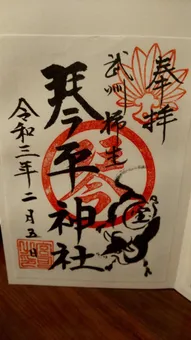 奉拝
武州 柿生
琴平神社
令和三年二月五日